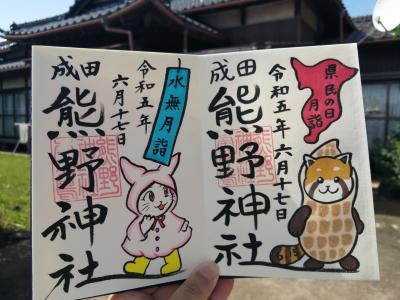 成田
熊野神社
令和五年
六月十七日
水無月詣
成田
熊野神社
令和五年六月十七日
県民の日
月詣